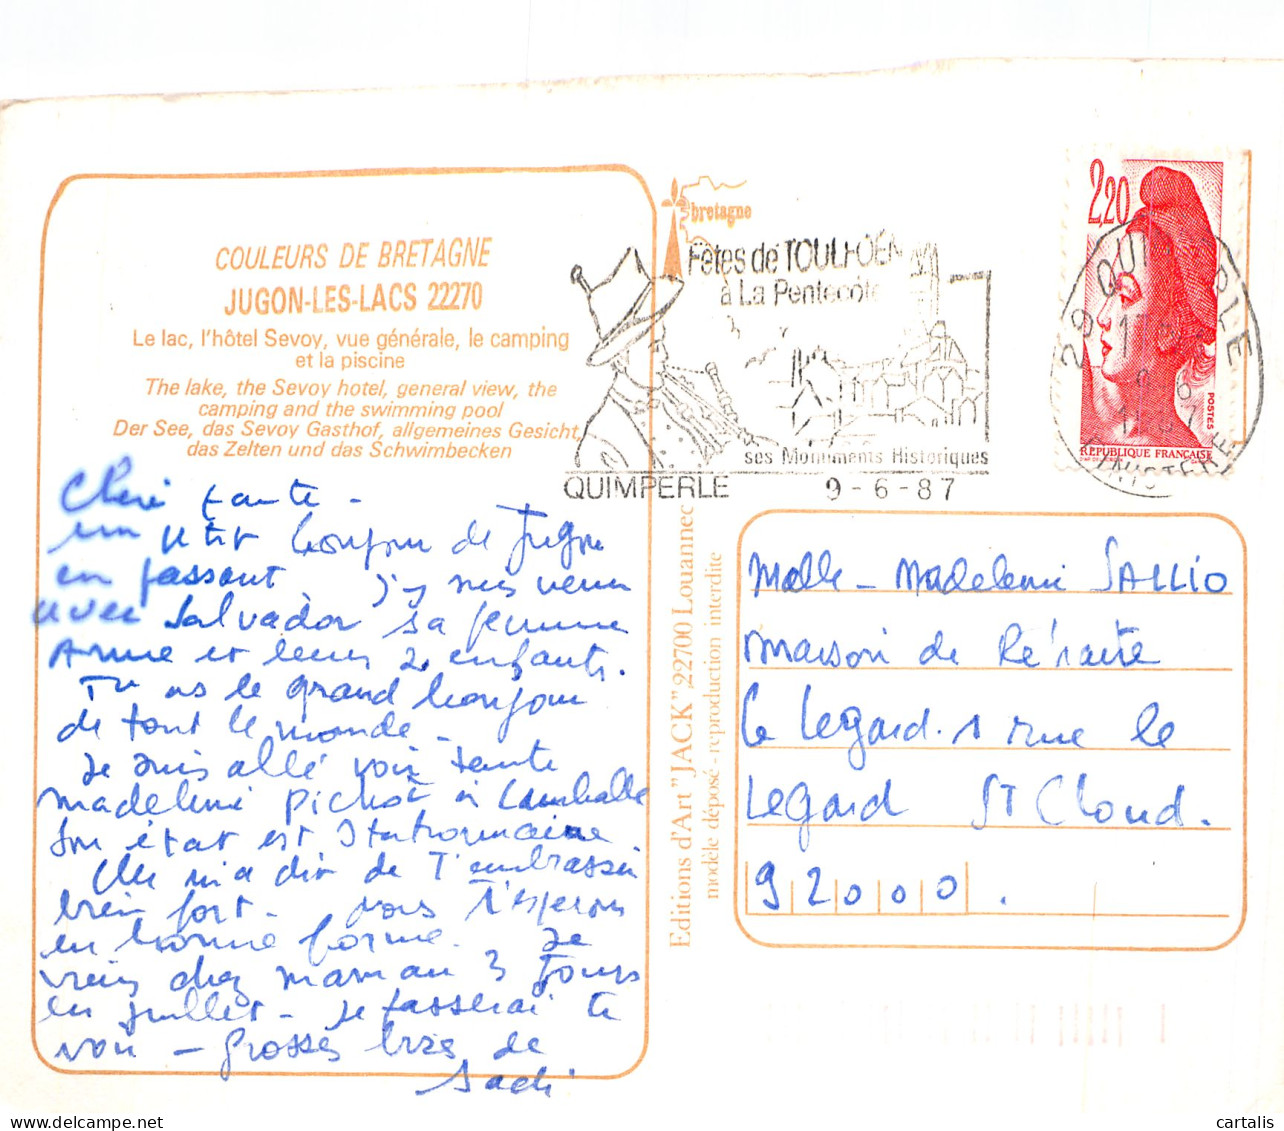 COULEURS DE BRETAGNE
JUGON-LES-LACS 22270
Le lac, l'hôtel Sevoy, vue générale, le camping
et la piscine
The lake, the Sevoy hotel, general view, the
camping and the swimming pool
Der See, das Sevoy Gasthof, allgemeines Gesicht,
das Zelten und das Schwimbecken
Chère tante -
un petit bonjour de Jugon
en passant j'y suis venu
avec Salvador sa femme
Anne et leurs 2 enfants.
Tu as le grand bonjour
de tout le monde -
Je suis allé voir tante
Madeleine Pichot à Lamballe
Son état est Stationnaire
Elle m'a dit de T'embrasser
bien fort - nous T'espérons
en bonne forme. Je
viens chez maman 3 Jours
en juillet - Je passerai te
voir - Grosses bises de
Sadi
bretagne
Fêtes de TOULFOËN
à La Pentecôte
ses Monuments Historiques
QUIMPERLE 9-6-87
2,20
POSTES
REPUBLIQUE FRANÇAISE
29 QUIMPERLE
FINISTERE
Editions d'Art "JACK" 22700 Louannec
modèle déposé - reproduction interdite
Melle - Madeleine SALLIO
Maison de Retraite
Le Legard. 1 rue le
Legard St Cloud.
92000.
cartalis